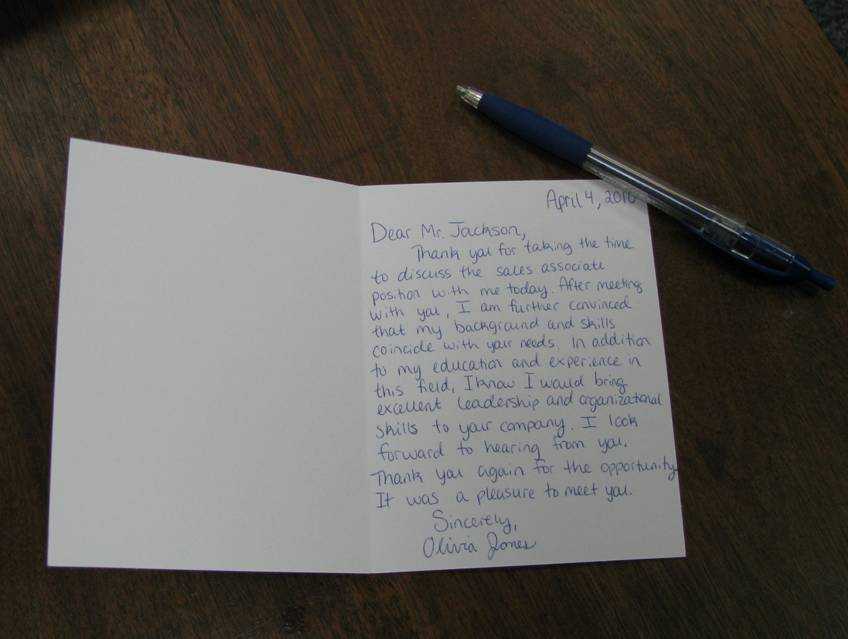 April 4, 2010
Dear Mr. Jackson,
Thank you for taking the time
to discuss the sales associate
position with me today. After meeting
with you, I am further convinced
that my background and skills
coincide with your needs. In addition
to my education and experience in
this field, I know I would bring
excellent leadership and organizational
skills to your company. I look
forward to hearing from you.
Thank you again for the opportunity.
It was a pleasure to meet you.
Sincerely,
Olivia Jones